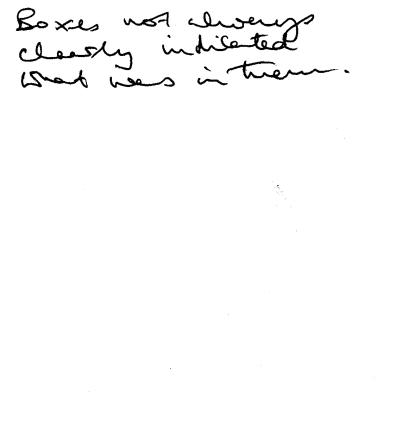 Boxes not always
clearly indicated
what was in them.